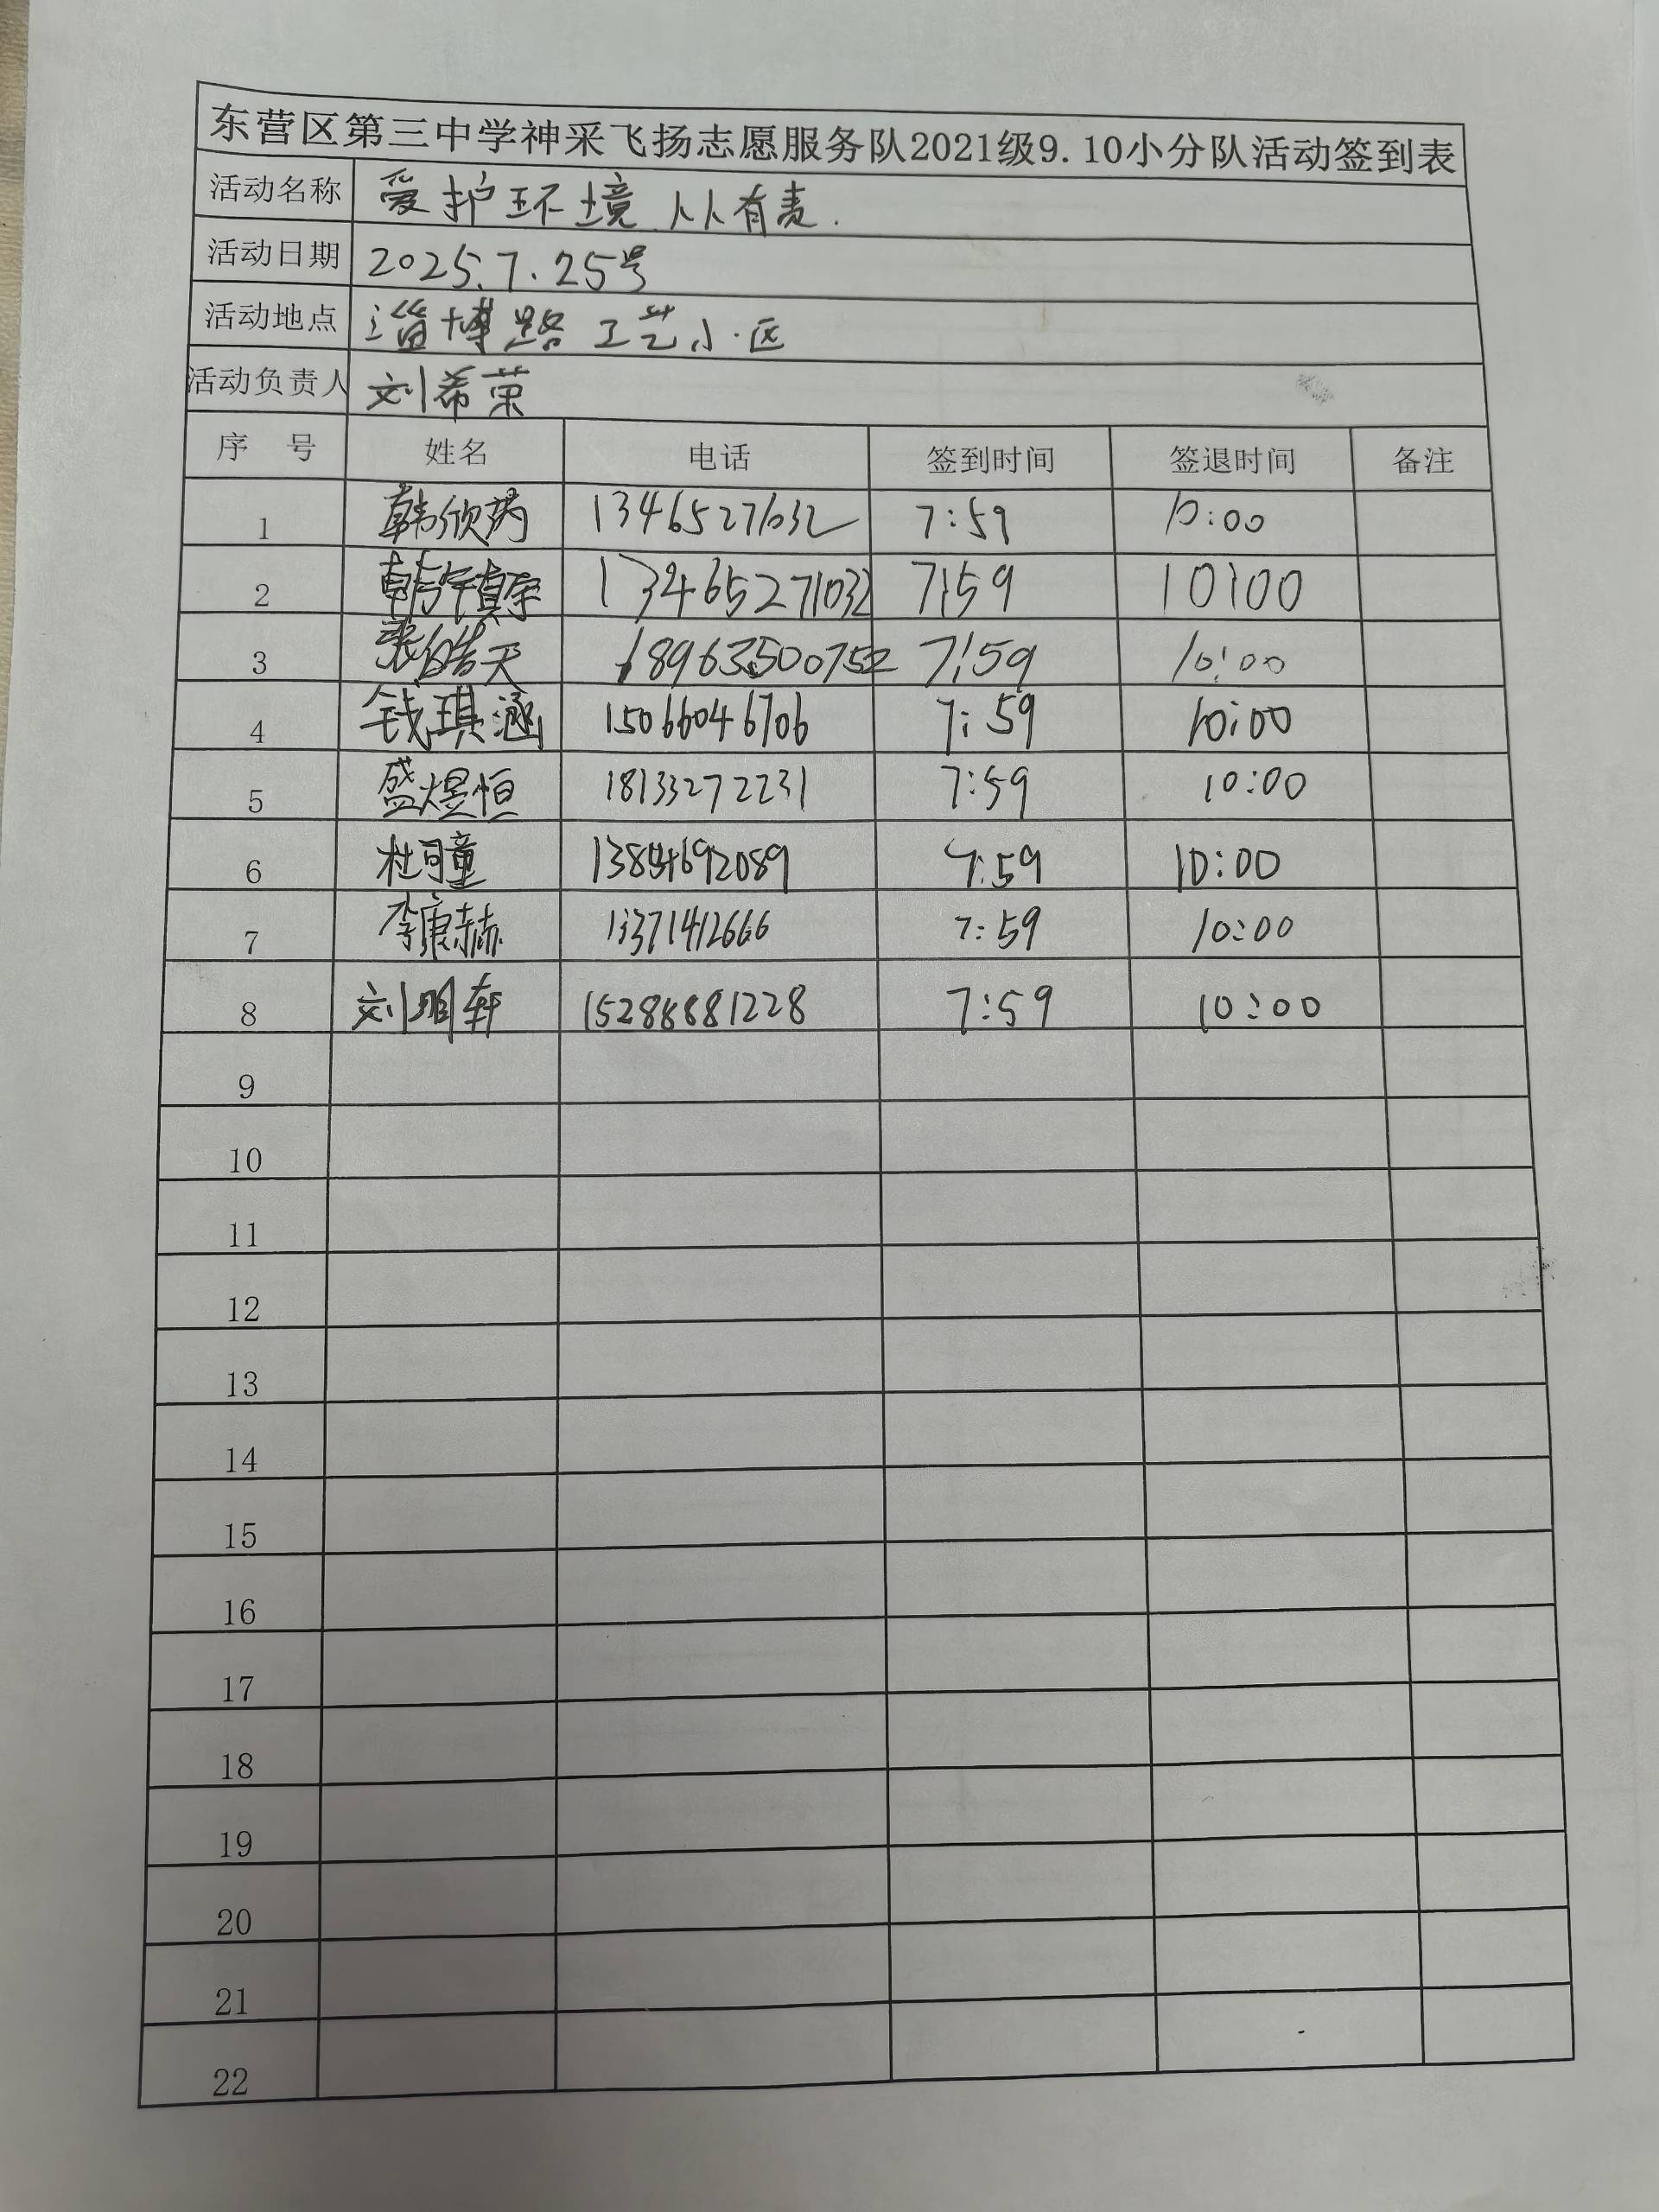 东营区第三中学神采飞扬志愿服务队2021级9.10小分队活动签到表
活动名称 爱护环境 人人有责.
活动日期 2025.7.25号
活动地点 淄博路 工艺小区
活动负责人 刘希荣
序 号 姓名 电话 签到时间 签退时间 备注
1 韩欣芮 7:59 10:00
2 13465271032 7:59 10:00
3 张皓天 7:59 10:00
4 钱琪涵 15066046706 7:59 10:00
5 盛煜恒 18133272231 7:59 10:00
6 杜可童 7:59 10:00
7 李康赫 13371412666 7:59 10:00
8 刘明轩 15288881228 7:59 10:00
9
10
11
12
13
14
15
16
17
18
19
20
21
22